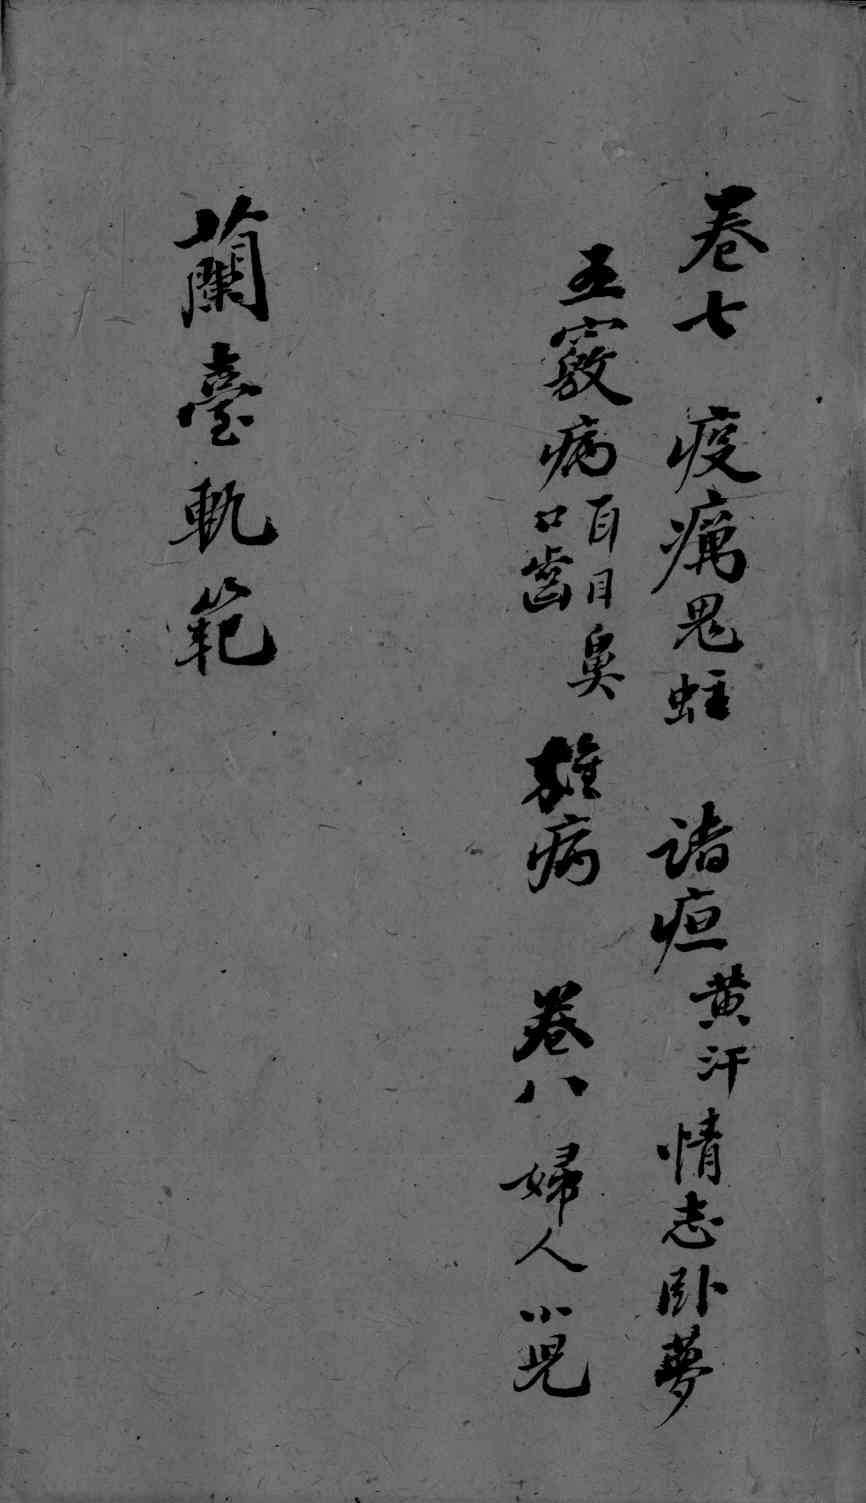 卷七 疫癘鬼蛀 諸疸黄汗 情志卧夢
五竅病耳目鼻口齒 雜病 卷八 婦人小児
蘭臺軌範